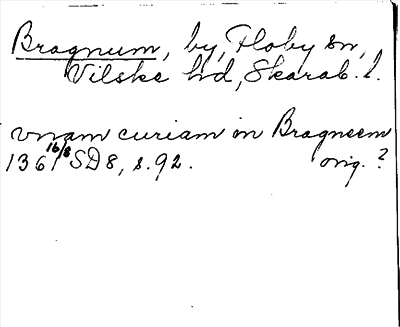 Bragnum, by, Floby sn,
Vilske hd, Skarab. l.
vnam curiam in Bragneem
1361 16/8 SD8, s. 92. orig. ?